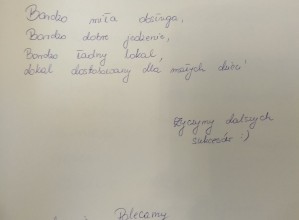 Bardzo miła obsługa,
Bardzo dobre jedzenie,
Bardzo ładny lokal,
lokal dostosowany dla małych dzieci!
Życzymy dalszych
sukcesów :)
Polecamy